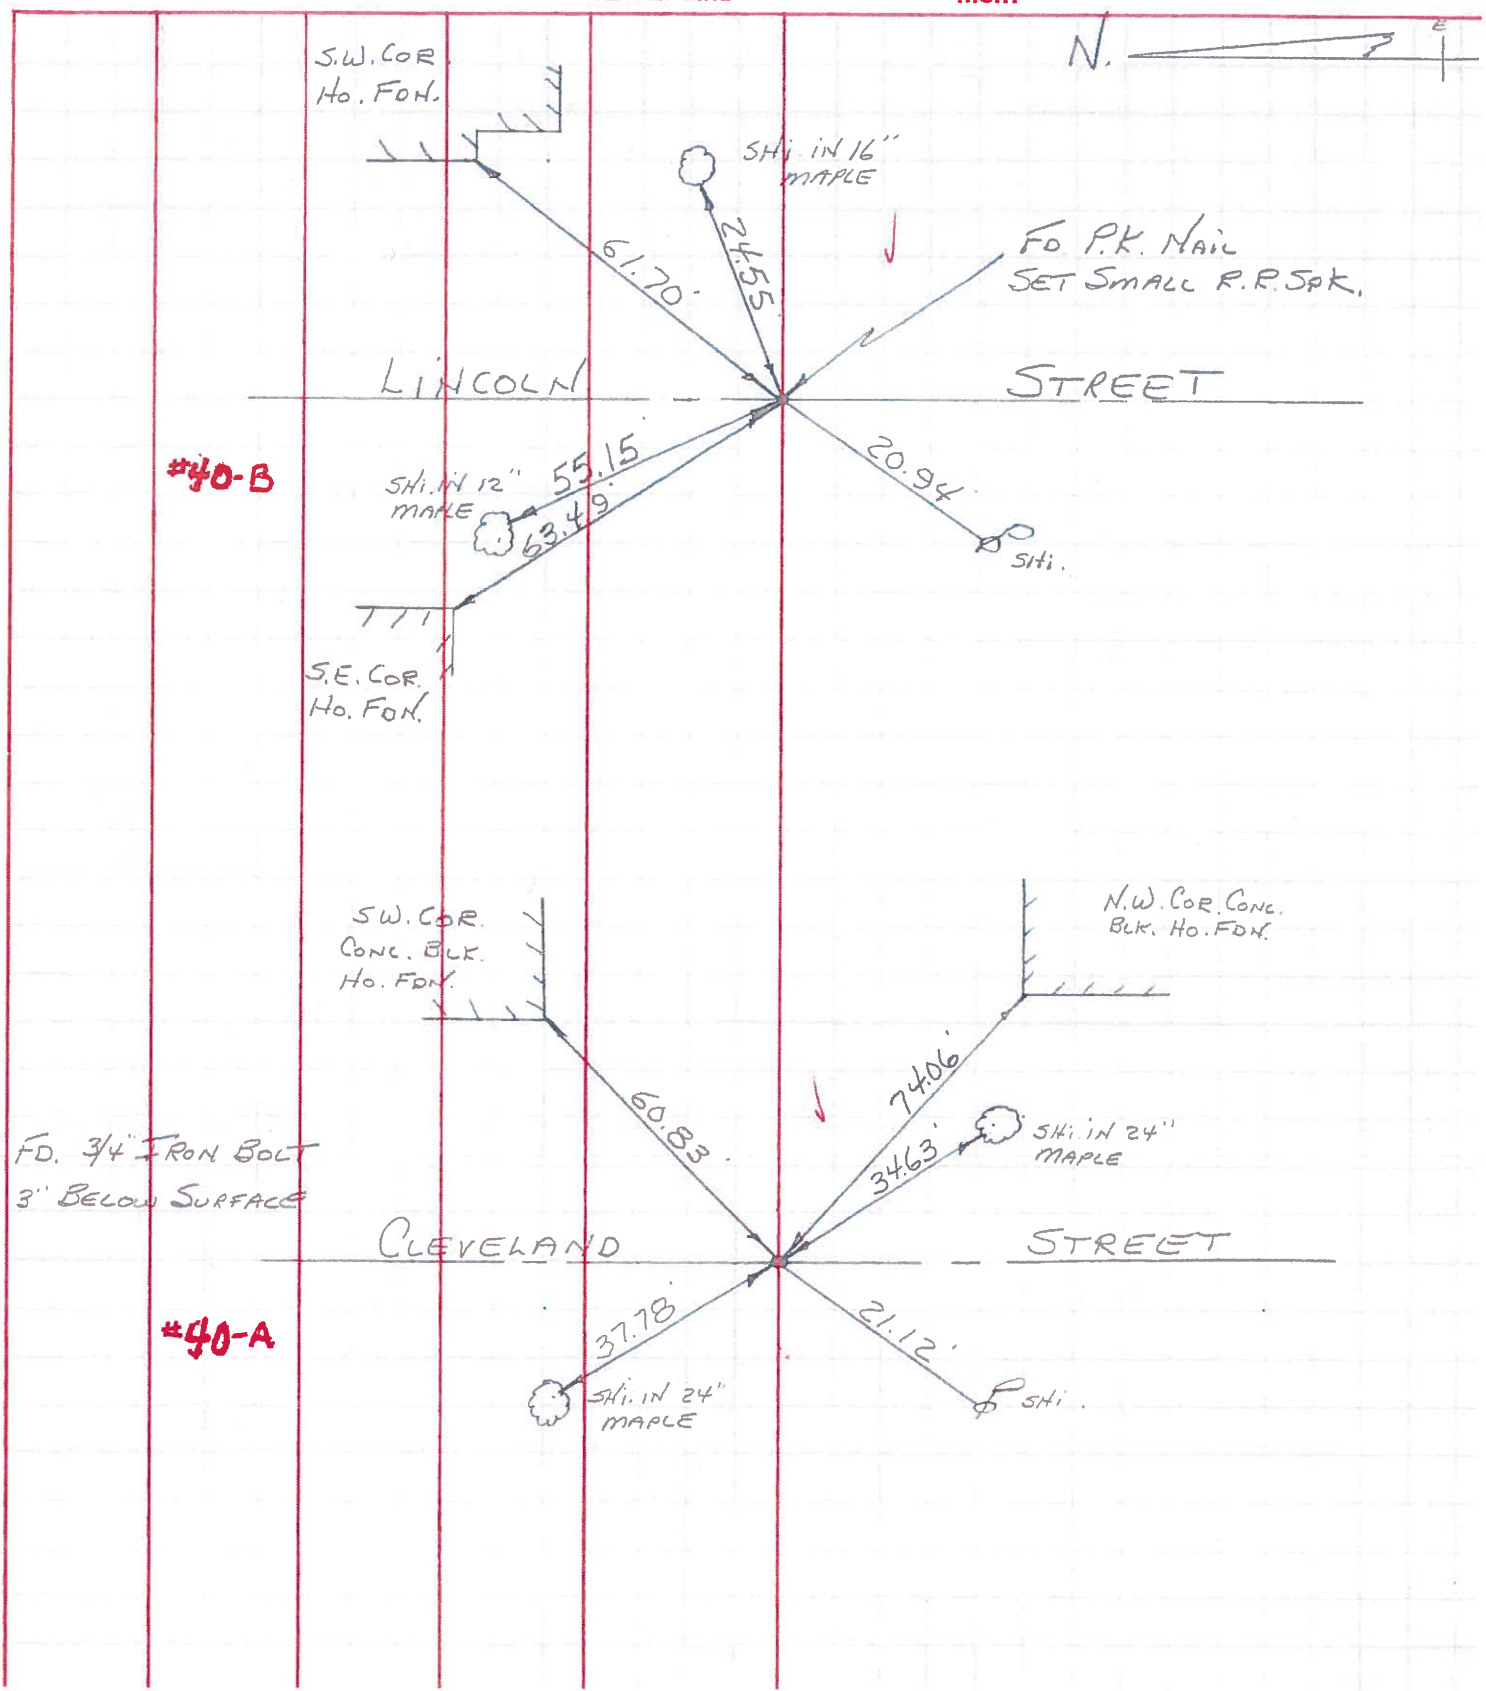 N.
E
S.W. COR
HO. FDN.
SHi. IN 16"
MAPLE
61.70'
24.55
FD. P.K. NAIL
SET SMALL R.R. SPK.
LINCOLN STREET
#40-B
SHi. IN 12"
MAPLE
55.15
63.49'
20.94
SHi.
S.E. COR.
HO. FDN.
SW. COR.
CONC. BLK.
HO. FDN.
N.W. COR. CONC.
BLK. HO. FDN.
60.83
74.06'
34.63'
SHi. IN 24"
MAPLE
FD. 3/4" IRON BOLT
3" BELOW SURFACE
CLEVELAND STREET
#40-A
37.78'
21.12'
SHi. IN 24"
MAPLE
SHi.